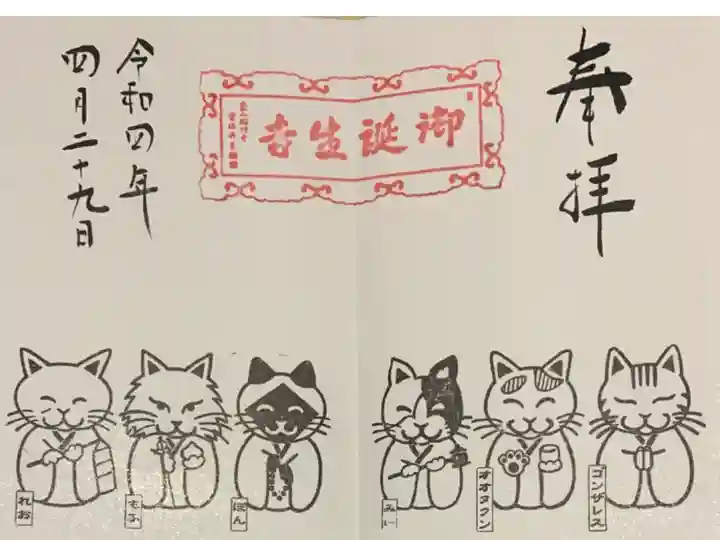 奉拝
御誕生寺
令和四年
四月二十九日
ゴンザレス
オオタクン
みい
ぽん
もふ
れお